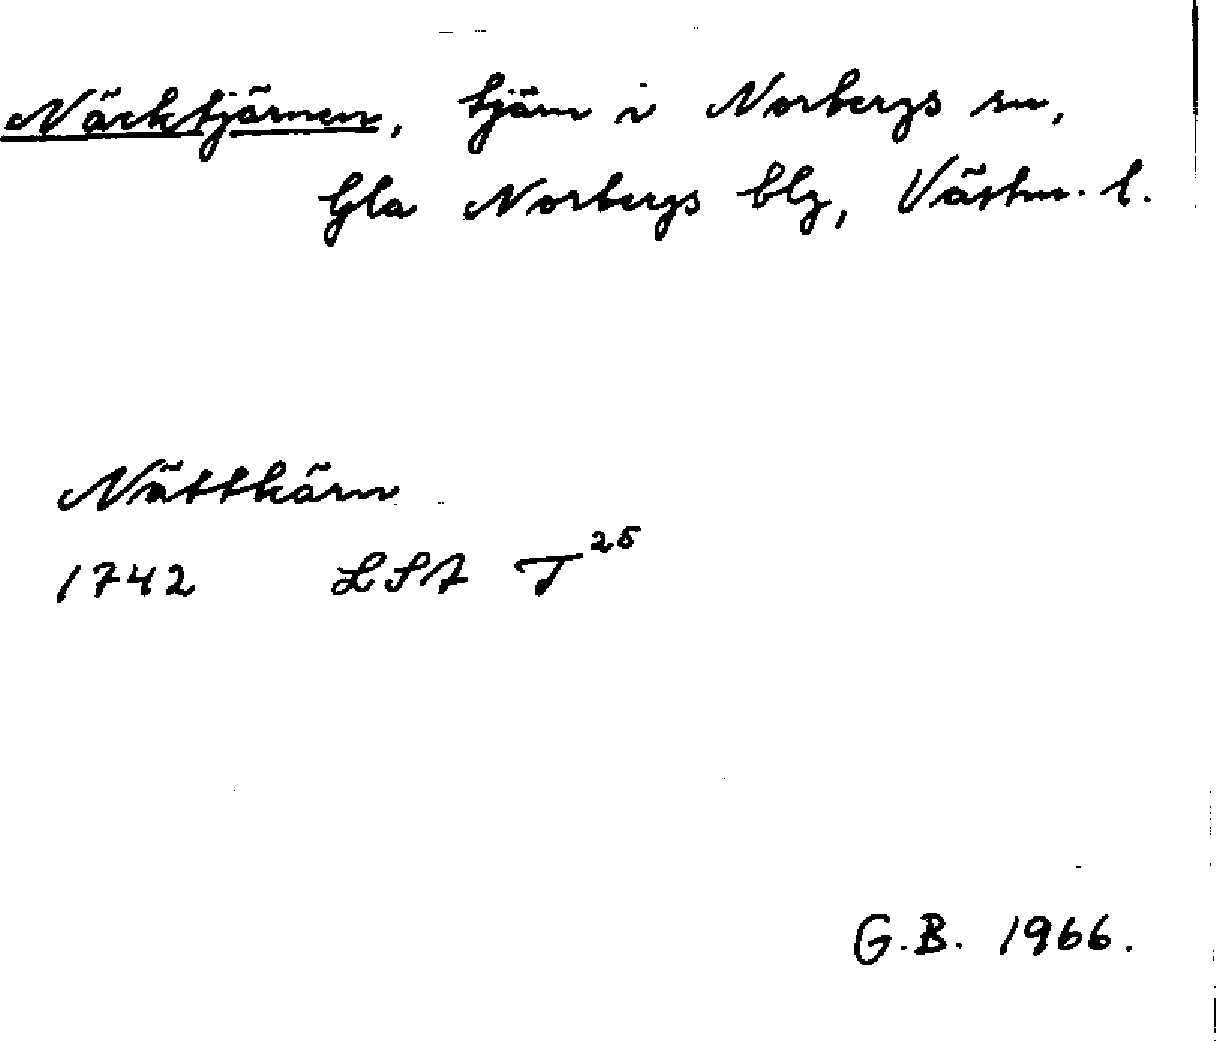 Näcktjärnen, tjärn i Norbergs sn,
Gla Norbergs blg, Västm. l.
Nättkärn
1742 LSA T 25
G.B. 1966.